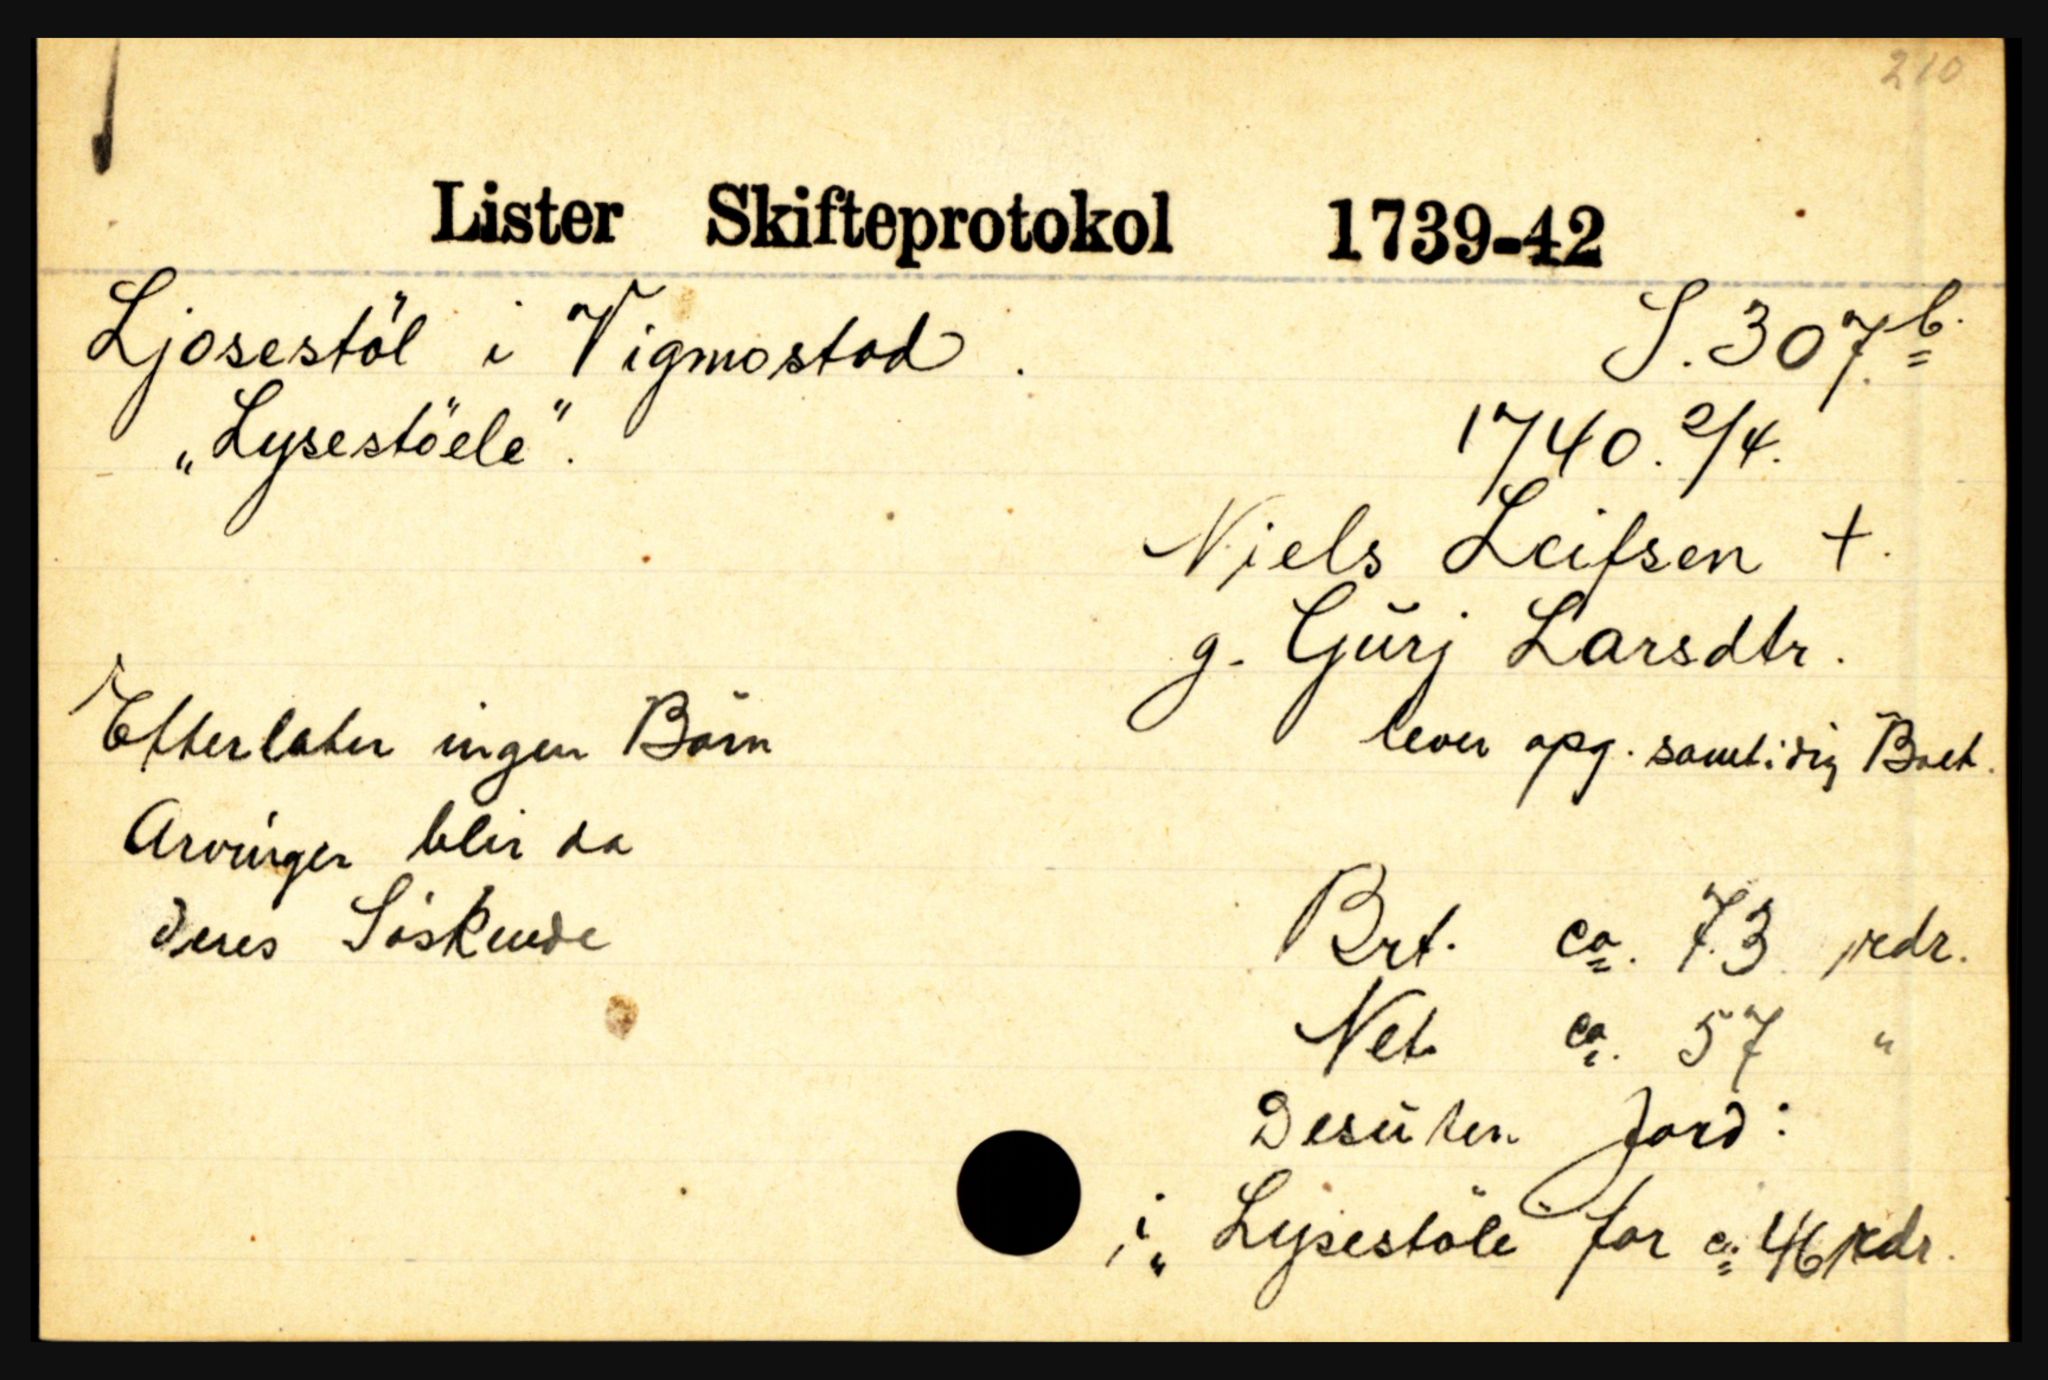 210
Lister Skifteprotokol 1739-42
Ljosestöl i Vigmostad. S. 307 b.
„Lysestöele". 1740. 2/4.
Niels Leifsen +.
g. Gŭrj Larsdtr.
lever opg. samtidig Boet.
Efterlater ingen Börn
Arvinger blir da
deres Söskende
Brt. ca. 73 rdr.
Net. ca. 57 "
Desŭten Jord:
i „Lysestöle" for c. 46 rdr.